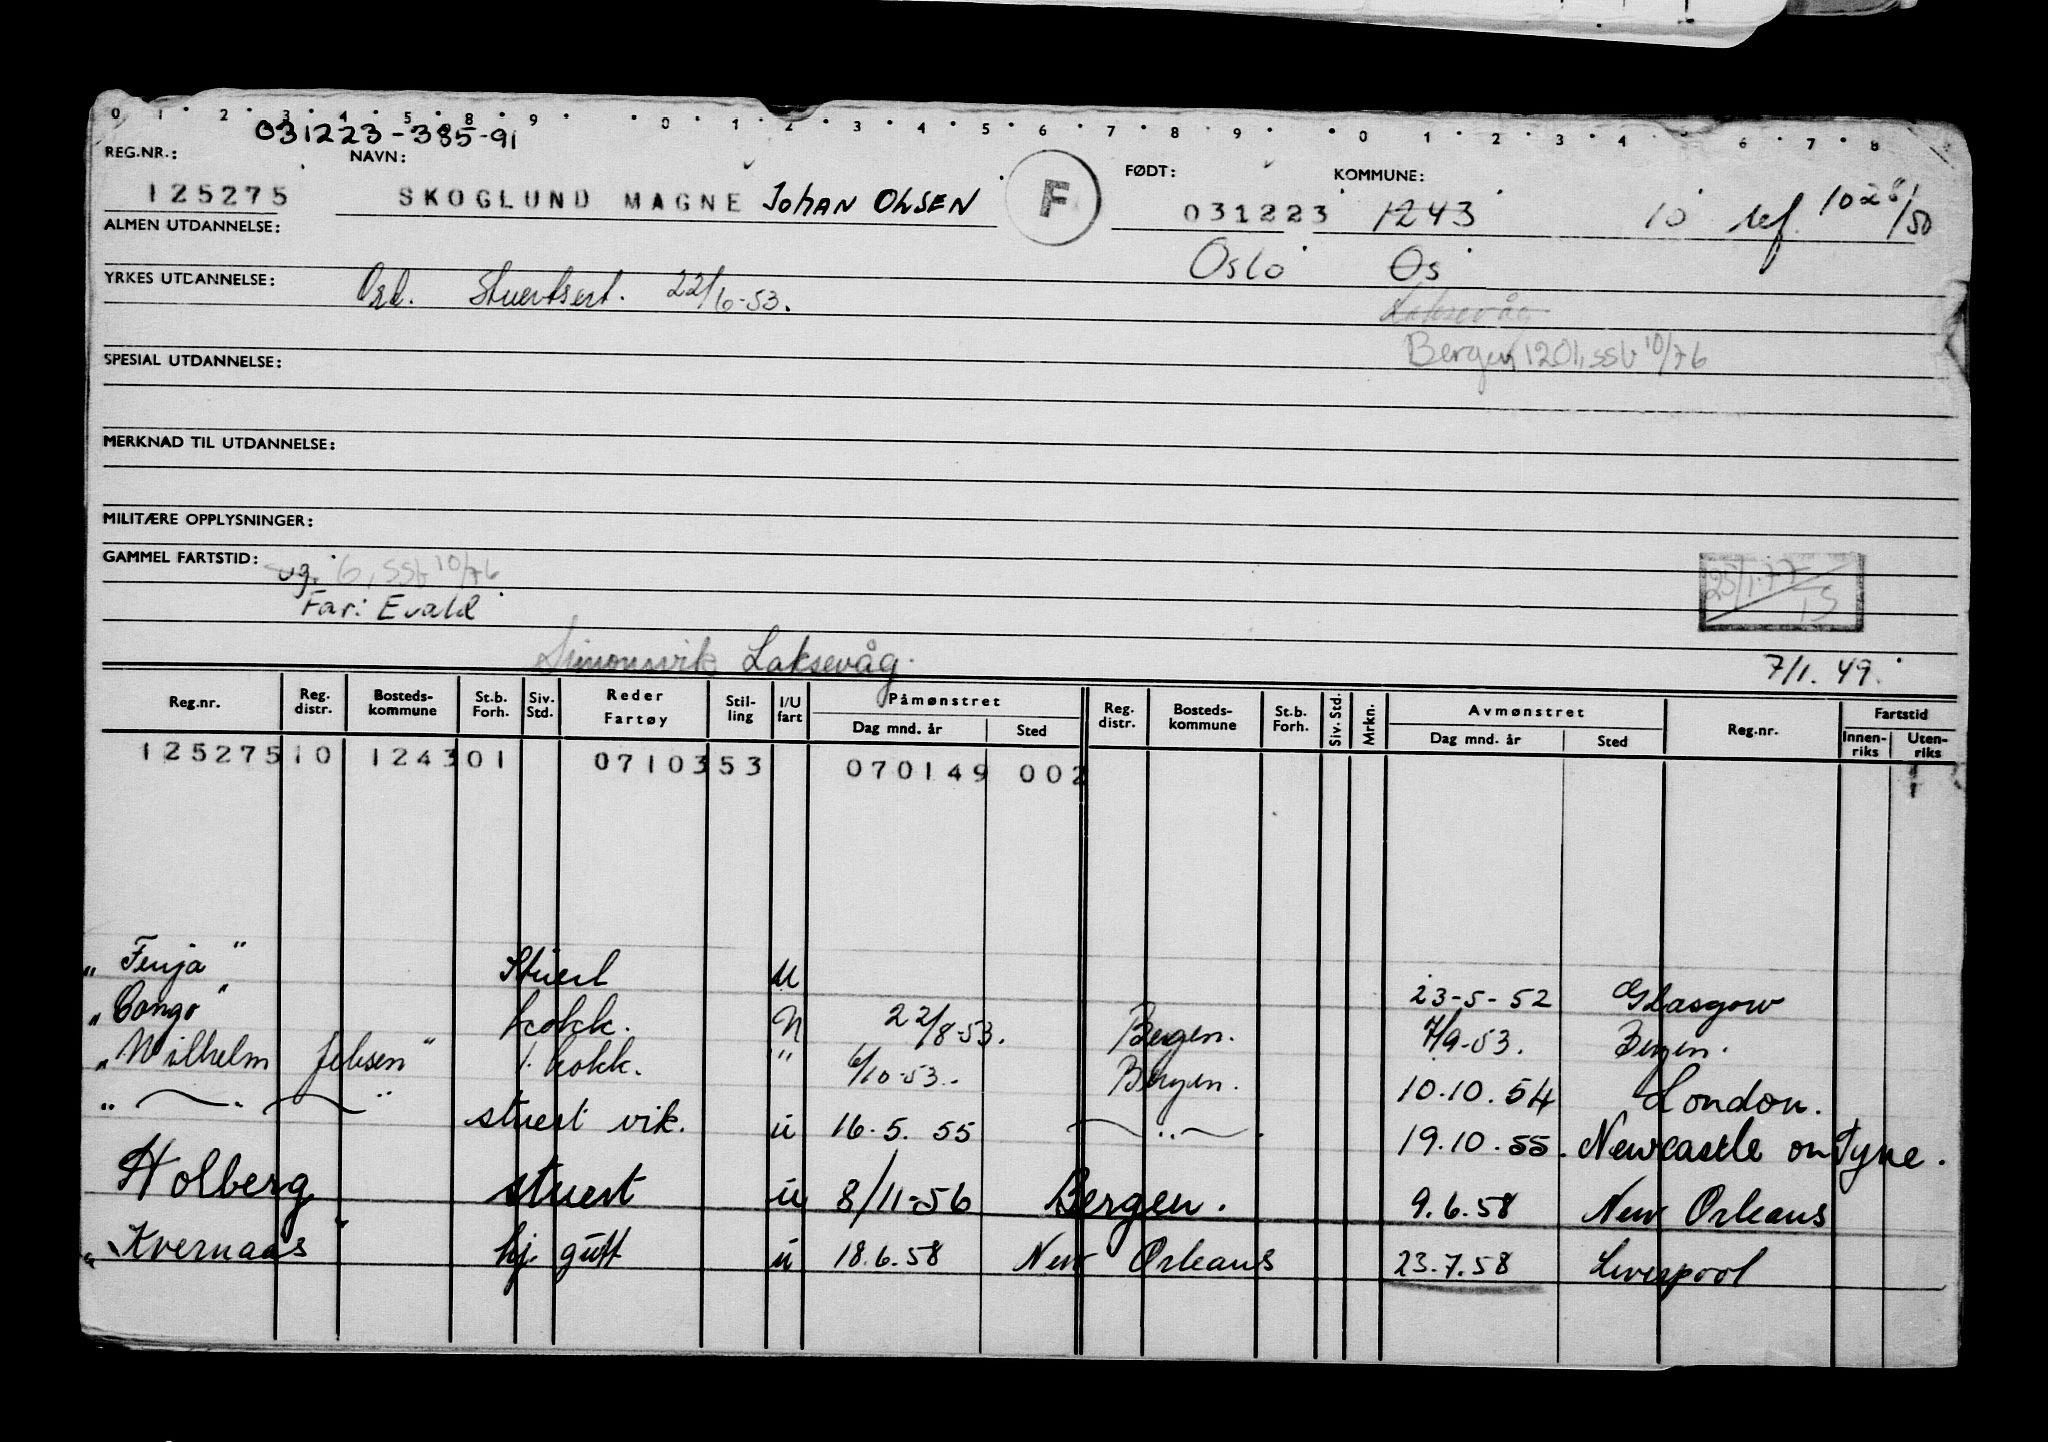 0 1 2 3 4 5 8 9 0 1 2 3 4 5 6 7 8 9 0 1 2 3 4 6 7 8
031223-385-91
REG.NR.: NAVN: FØDT: KOMMUNE:
125275 SKOGLUND MAGNE Johan OLSEN F 031223 1243 10 ref. 1028/50
ALMEN UTDANNELSE:
Oslo Os
YRKES UTDANNELSE: Ord. Stuertsert. 22/6-53.
Laksevåg
Bergen 1201, ssb 10/76
SPESIAL UTDANNELSE:
MERKNAD TIL UTDANNELSE:
MILITÆRE OPPLYSNINGER:
GAMMEL FARTSTID:
ug. 6, ssb 10/76
25/1-77 IS
Far: Evald
Simonsvik Laksevåg.
7/1.49.
Reg.nr. Reg. distr. Bosteds-kommune St.b. Forh. Siv. Std. Reder Fartøy Stil-ling I/U fart Påmønstret Dag mnd. år Sted Reg. distr. Bosteds-kommune St.b. Forh. Siv. Std. Mrkn. Avmønstret Dag mnd. år Sted Reg.nr. Fartstid Innen-riks Uten-riks
125275 10 1243 01 0710353 070149 002
"Fenja" Stuert U 23-5-52 Glasgow
"Congo" kokk. N 22/8-53. Bergen. 7/9-53. Bergen.
"Wilhelm Jebsen" 1. kokk. " 6/10-53. Bergen. 10.10.54 London.
" — " — " stuert vik. u 16.5.55 — " — . 19.10.55. Newcastle on Tyne.
Holberg stuert u 8/11-56 Bergen. 9.6.58 New Orleans
"Kvernaas" hj. gutt u 18.6.58 New Orleans 23.7.58 Liverpool